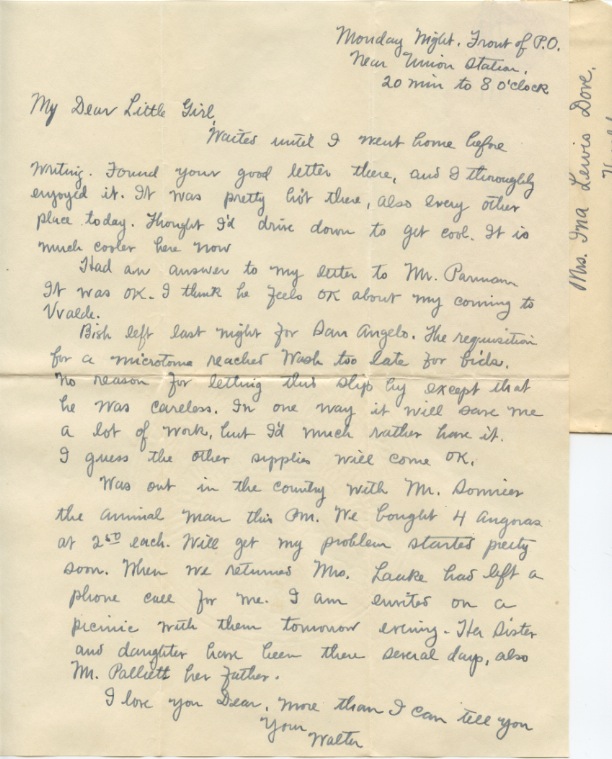 Monday Night. Front of P.O.
Near Union Station.
20 min to 8 o'clock
My Dear Little Girl,
Waited until I went home before
writing. Found your good letter there, and I thoroughly
enjoyed it. It was pretty hot there, also every other
place today. Thought I'd drive down to get cool. It is
much cooler here now
Had an answer to my letter to Mr. Parman
It was OK. I think he feels OK about my coming to
Uvalde.
Bish left last night for San Angelo. The requisition
for a microtome reached Wash too late for bids.
No reason for letting this slip by except that
he was careless. In one way it will save me
a lot of work, but I'd much rather have it.
I guess the other supplies will come OK.
Was out in the country with Mr.
the animal man this Pm. We bought 4 Angoras
at 2 50 each. Will get my problem started pretty
soon. When we returned Mrs. Laake had left a
phone call for me. I am invited on a
picnic with them tomorrow evening. Her Sister
and daughter have been there several days, also
Mr. her Father.
I love you Dear, more than I can tell you
Your
Walter
Mrs. Ina Lewis Dove,